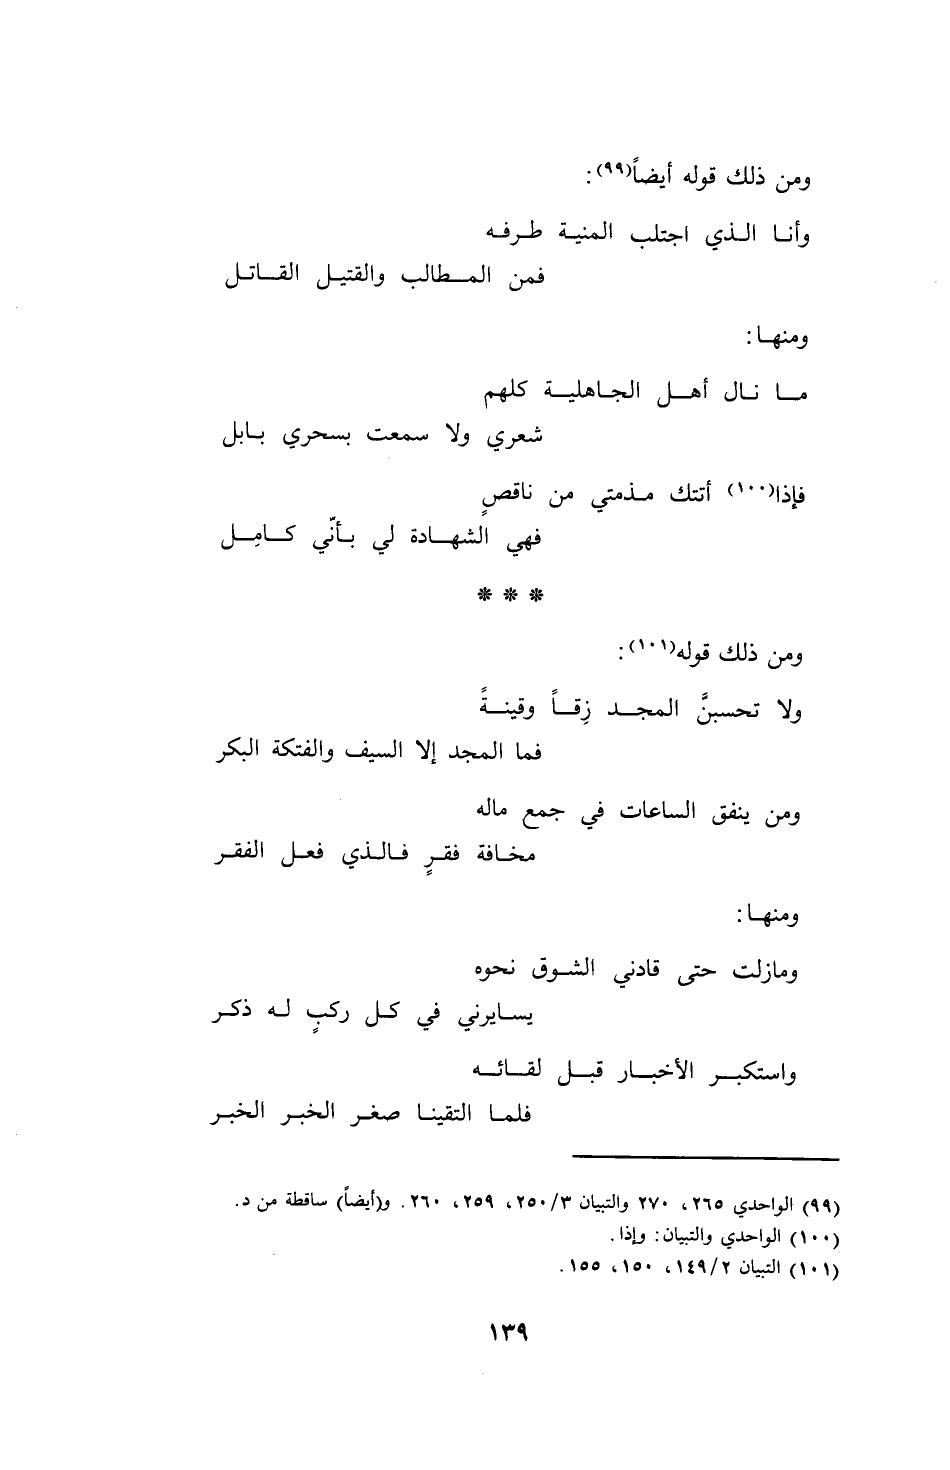 ومن ذلك قوله أيضاً(٩٩):
وأنا الذي اجتلب المنية طرفه
فمن المطالب والقتيل القاتل
ومنها:
ما نال أهل الجاهلية كلهم
شعري ولا سمعت بسحري بابل
فإذا(١٠٠) أتتك مذمتي من ناقصٍ
فهي الشهادة لي بأنّي كامِل
* * *
ومن ذلك قوله(١٠١):
ولا تحسبنَّ المجد زِقاً وقينةً
فما المجد إلا السيف والفتكة البكر
ومن ينفق الساعات في جمع ماله
مخافة فقرٍ فالذي فعل الفقر
ومنها:
ومازلت حتى قادني الشوق نحوه
يسايرني في كل ركبٍ له ذكر
واستكبر الأخبار قبل لقائه
فلما التقينا صغر الخبر الخبر
(٩٩) الواحدي ٢٦٥، ٢٧٠ والتبيان ٢٥٠/٣، ٢٥٩، ٢٦٠. و(أيضاً) ساقطة من د.
(١٠٠) الواحدي والتبيان: وإذا.
(١٠١) التبيان ١٤٩/٢، ١٥٠، ١٥٥.
١٣٩